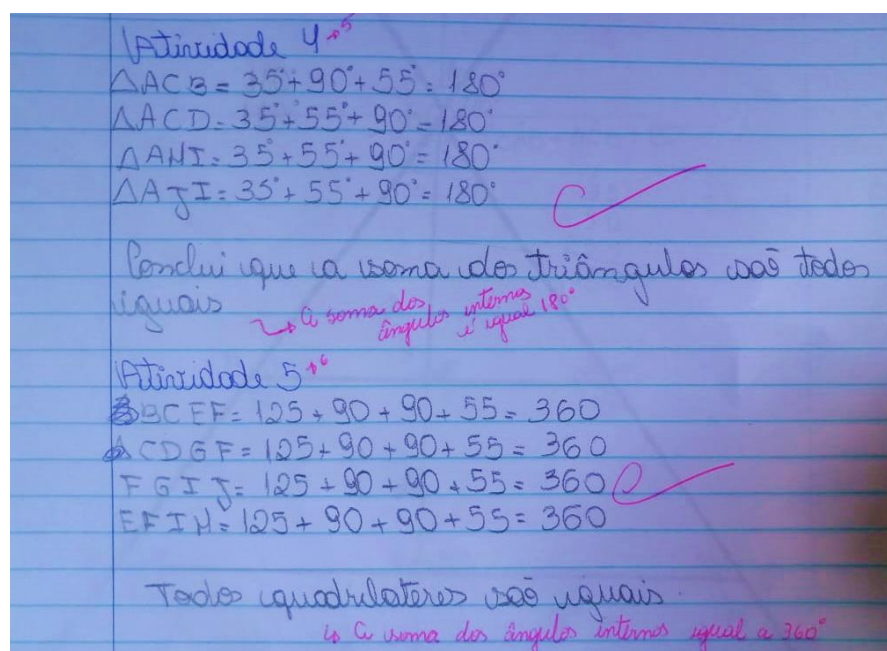 Atividade 4 → 5
ΔACB = 35°+ 90°+ 55° = 180°
ΔACD = 35°+ 55°+ 90° = 180°
ΔAHI = 35°+ 55°+ 90° = 180°
ΔAJI = 35° + 55° + 90° = 180°
Conclui que a soma dos triângulos saõ todos
iguais
↳ A soma dos
ângulos internos
é igual 180°
Atividade 5 → 6
BCEF = 125 + 90 + 90 + 55 = 360
CDGF = 125 + 90 + 90 + 55 = 360
FGIJ = 125 + 90 + 90 + 55 = 360
EFIH = 125 + 90 + 90 + 55 = 360
Todos quadrilateres saõ iguais.
↳ A soma dos ângulos internos igual a 360°